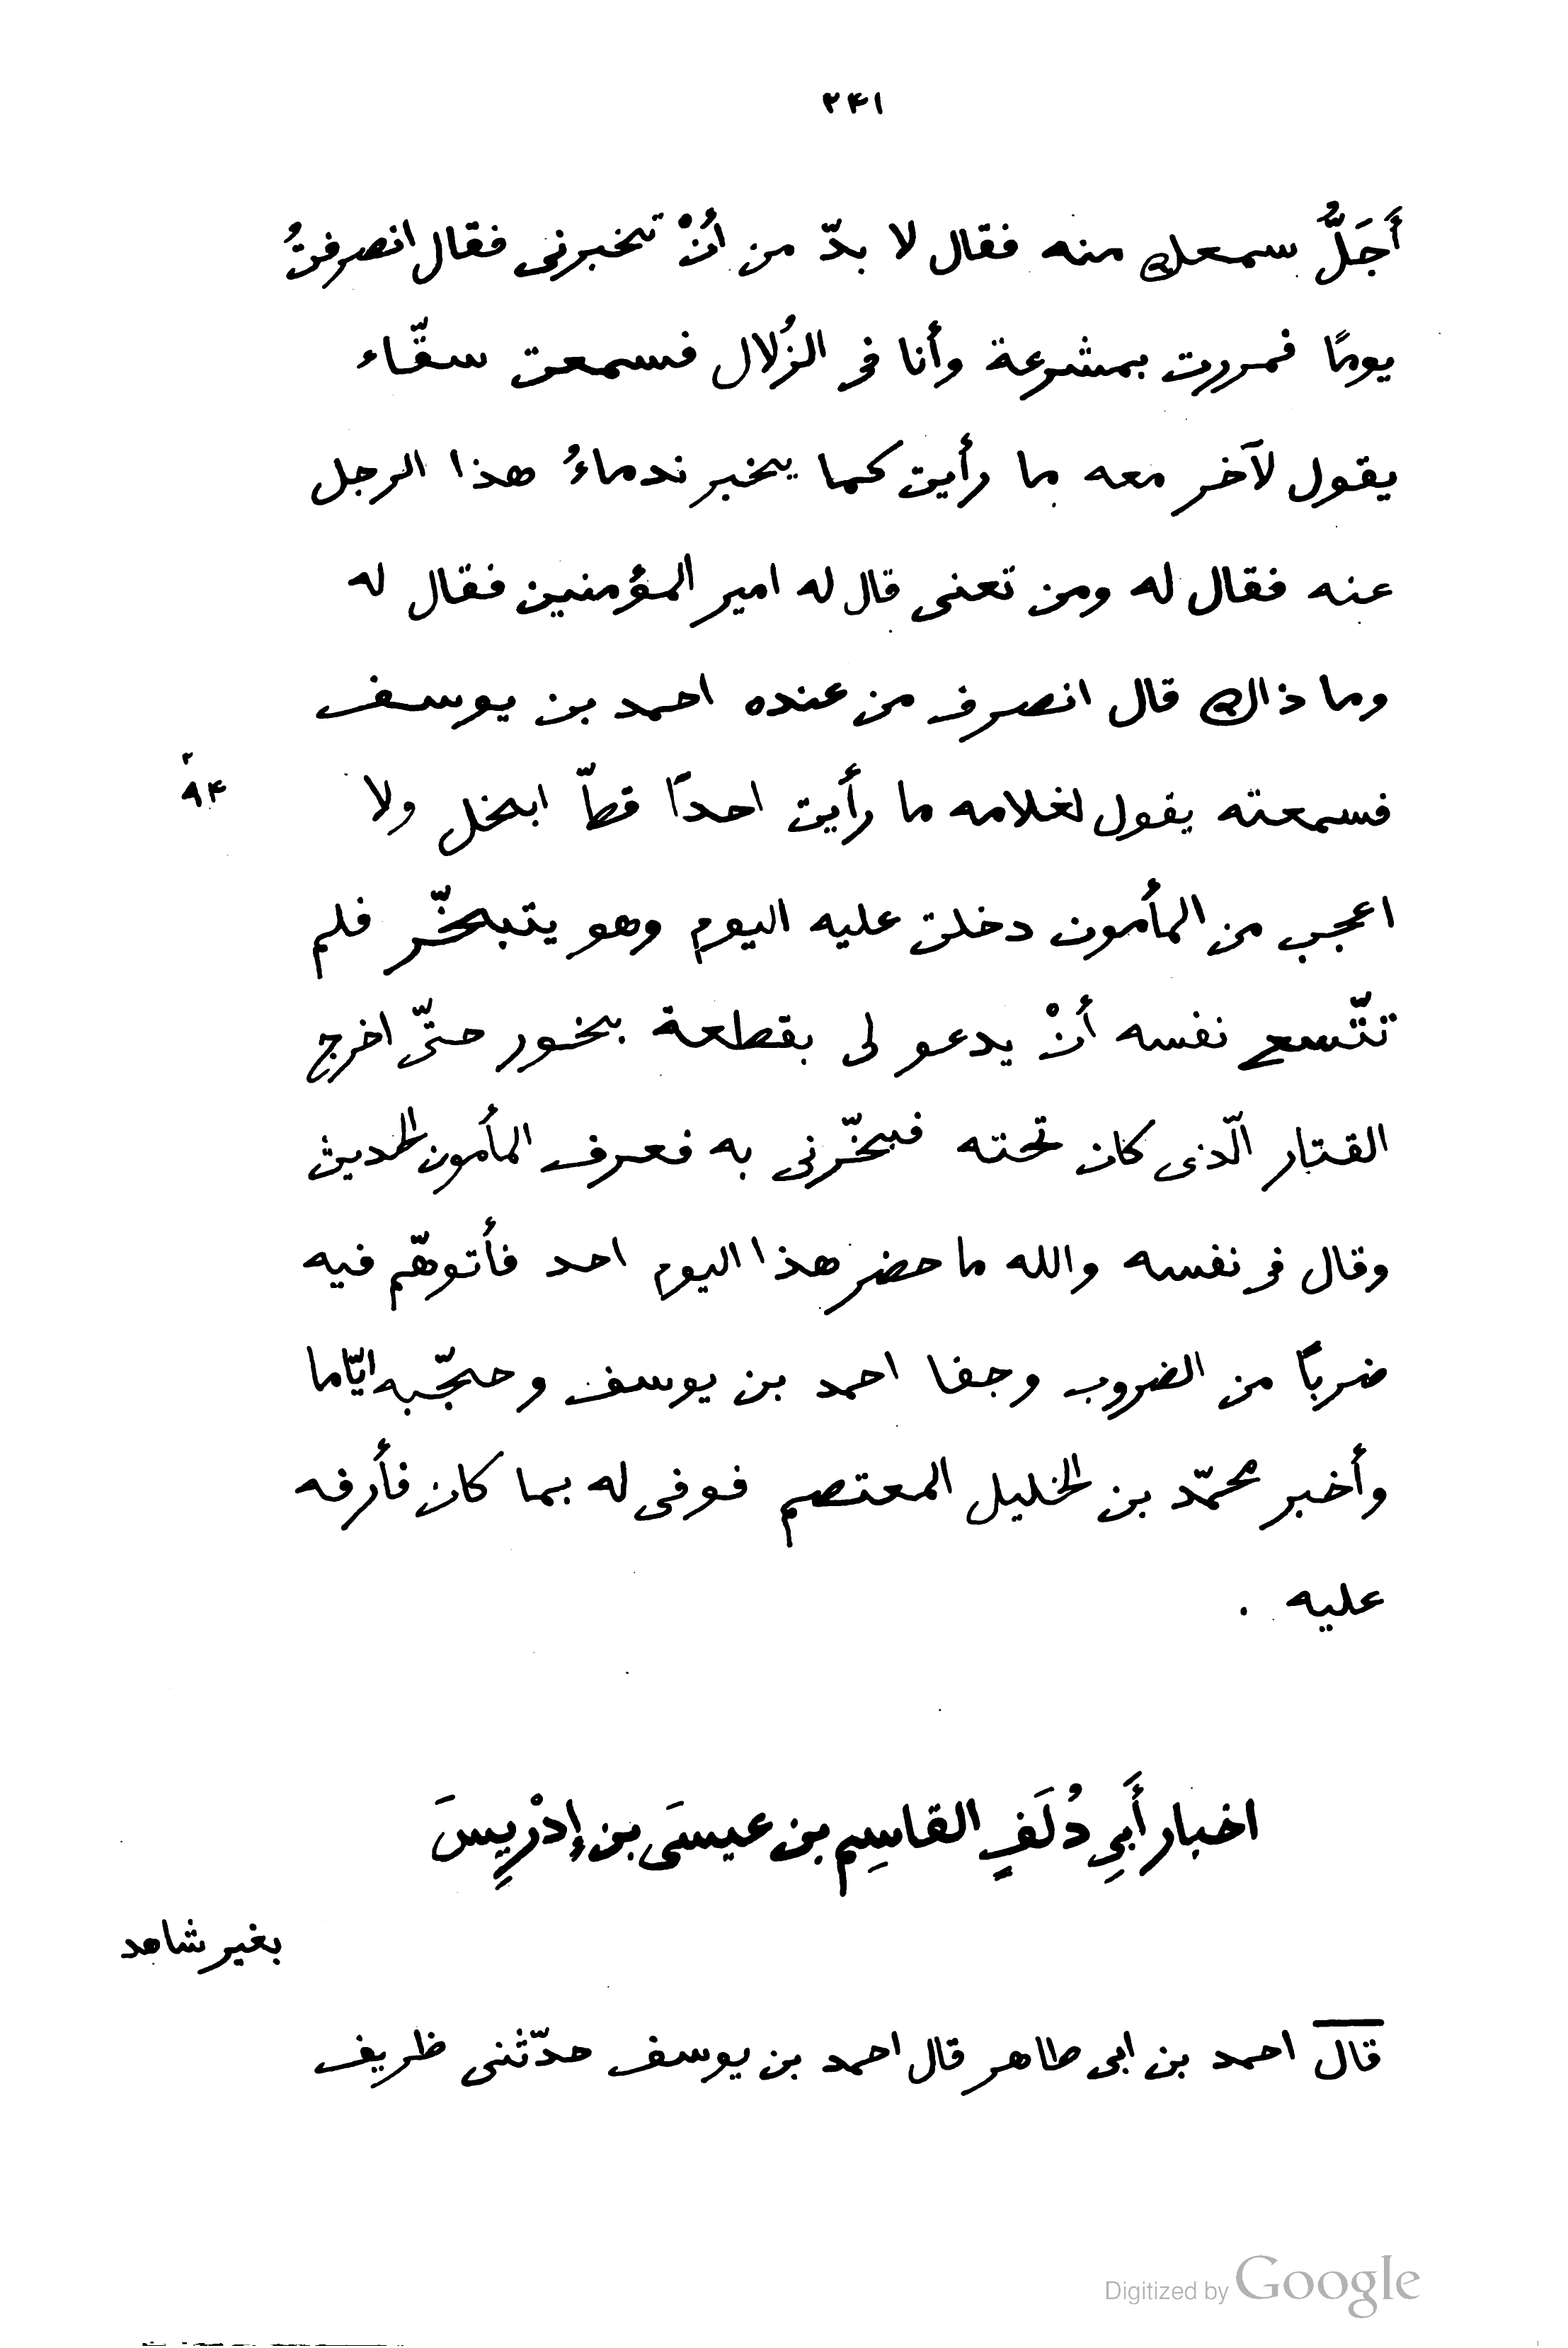 ٢٤١
أَجَلُّ سمعك منه فقال لا بدّ من أنْ تخبرنى فقال انصرفتُ
يومًا فمررت بمشرعة وأنا فى الزُلال فسمعت سقّاء
يقول لآخر معه ما رأيت كما يخبر ندماءُ هذا الرجل
عنه فقال له ومن تعنى قال له امير المؤمنين فقال له
وما ذاك قال انصرف من عنده احمد بن يوسف
فسمعته يقول لغلامه ما رأيت احدًا قطّ ابخل ولا
اعجب من المأمون دخلت عليه اليوم وهو يتبخّر فلم
تتّسع نفسه أنْ يدعو لى بقطعة بخور حتّى اخرج
القتار الّذى كان تحته فبخّرنى به فعرف المأمون الحديث
وقال فى نفسه والله ما حضر هذا اليوم احد فأتوهّم فيه
ضربًا من الضروب وجفا احمد بن يوسف وحجّبه ايّاما
وأخبر محمّد بن الخليل المعتصم فوفى له بما كان فأرفه
عليه .
اخبار أَبِى دُلَفٍ القاسِم بن عيسَى بن إدْرِيسَ
بغير شاهد
قال احمد بن ابى طاهر قال احمد بن يوسف حدّثنى ظريف
Digitized by Google